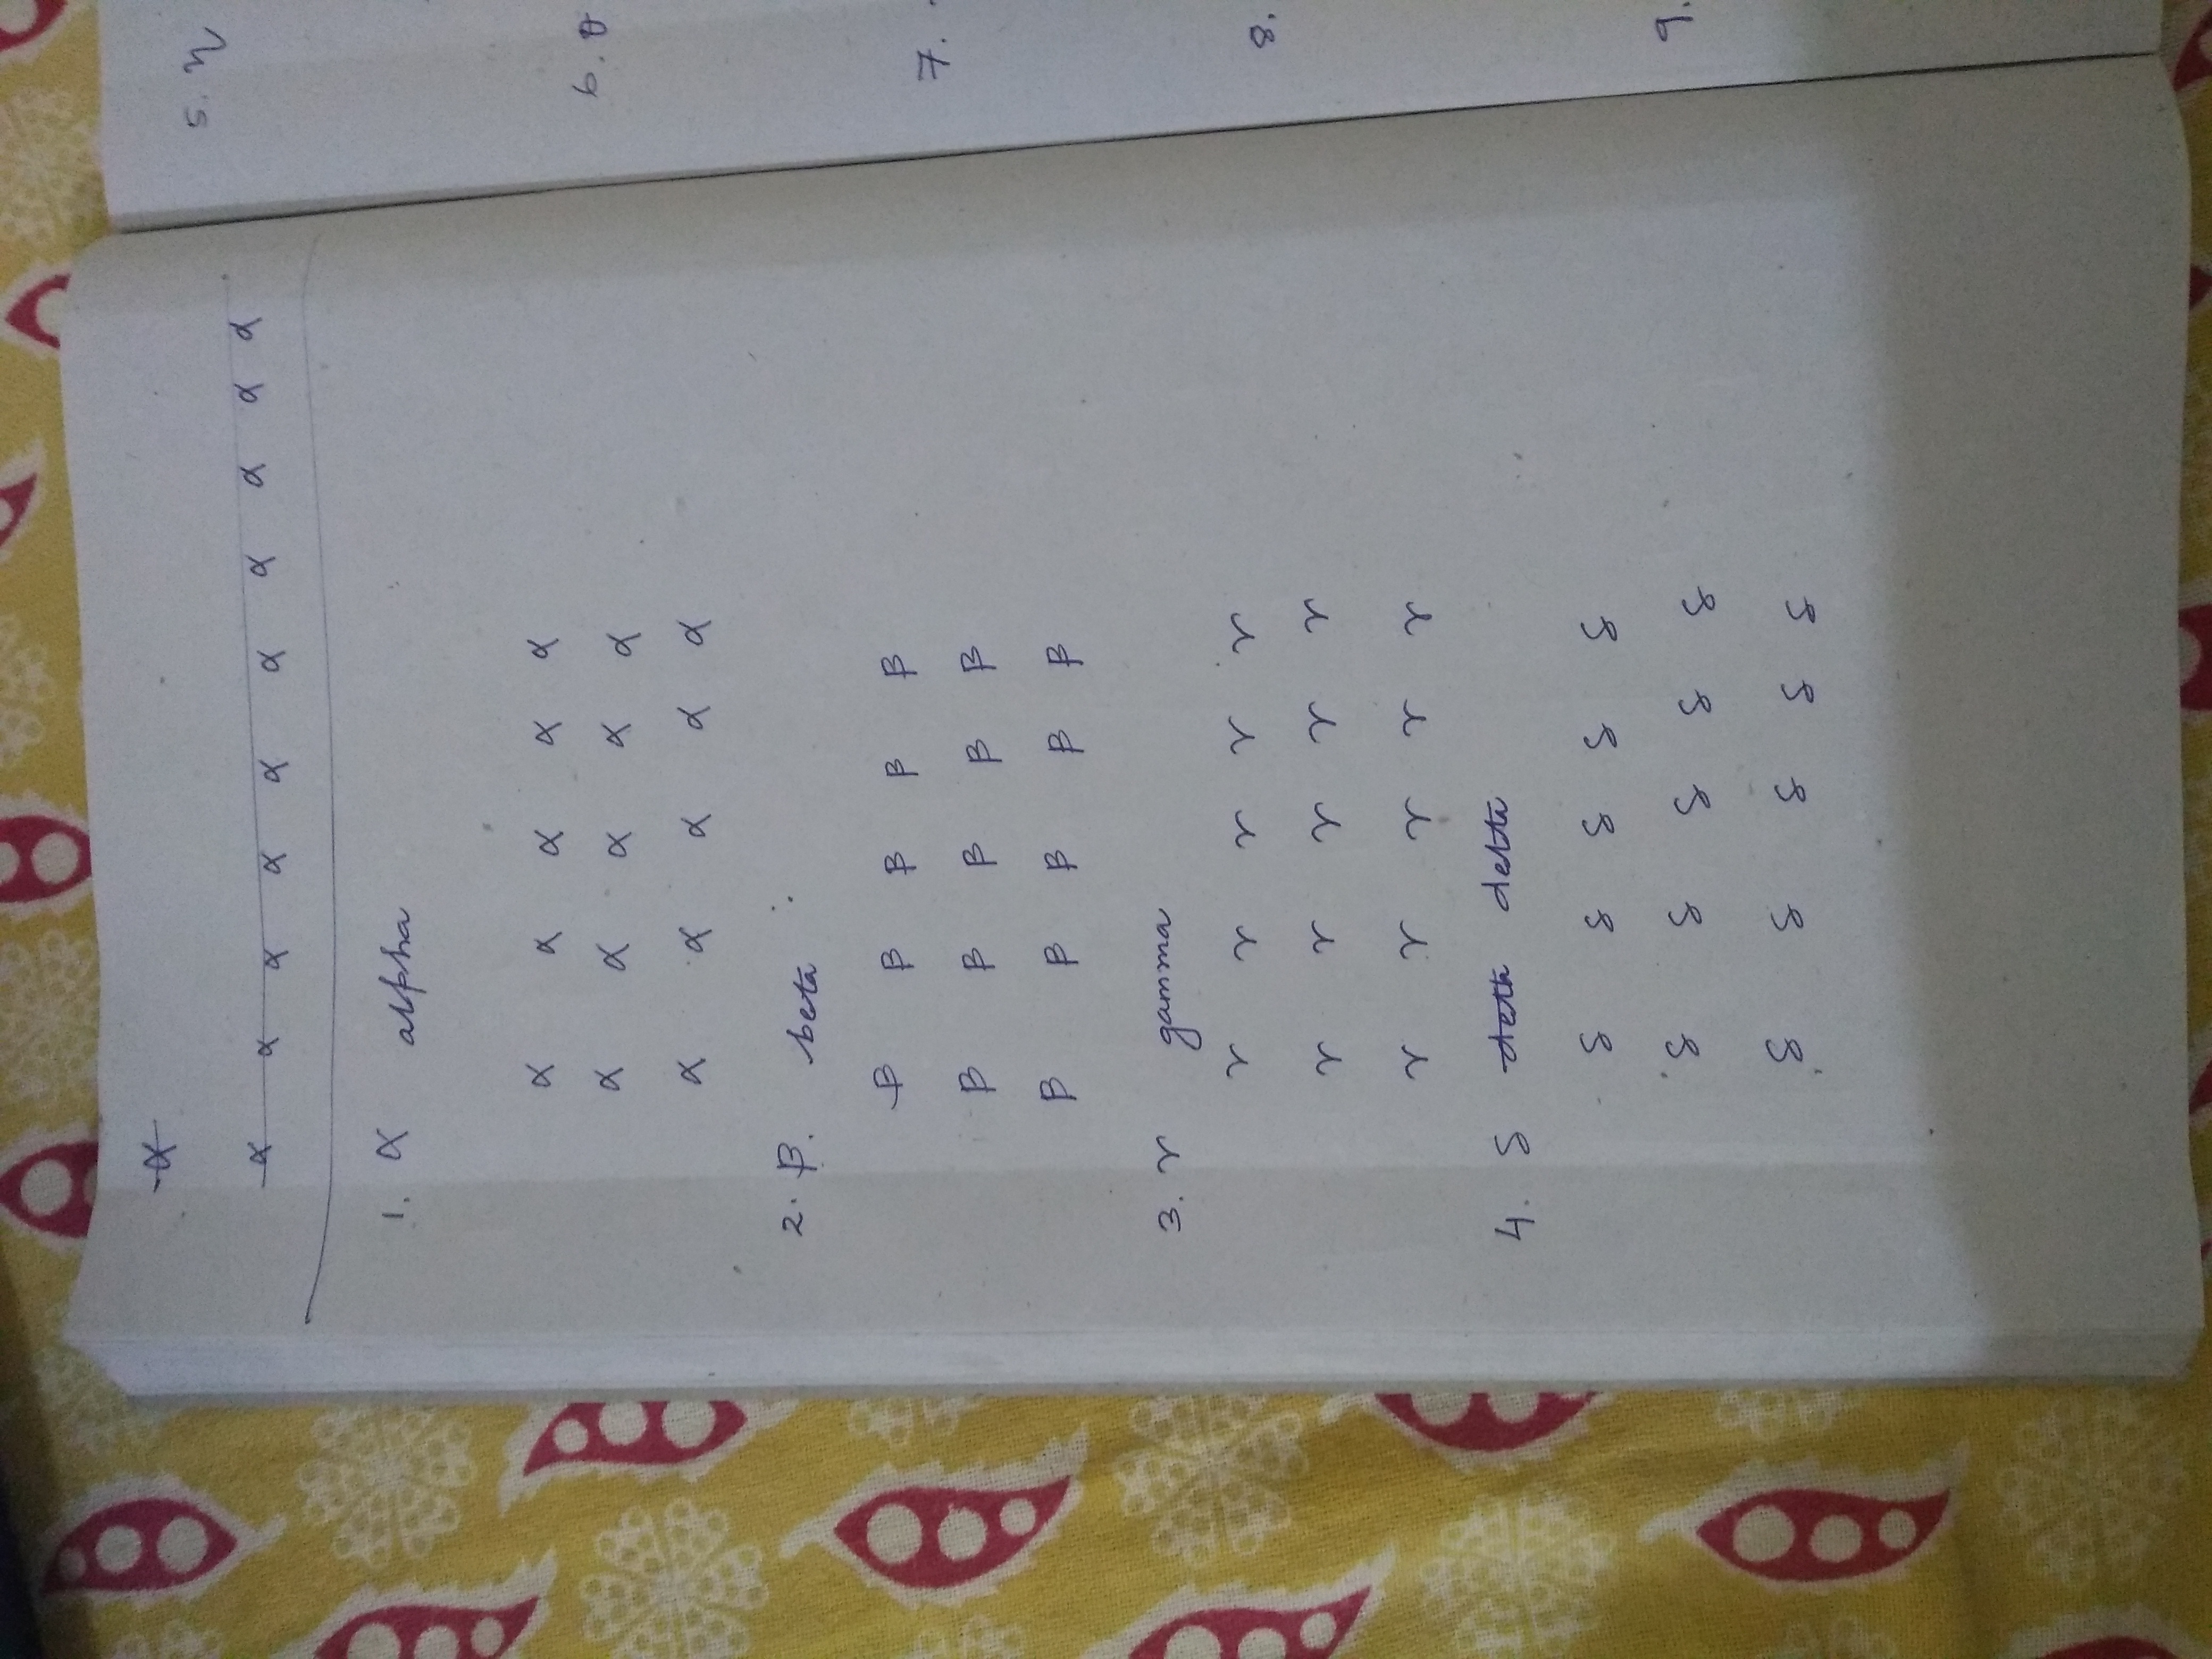 α
α α α α α α α α α α
1. α alpha
α α α α α
α α α α α
α α α α α
2. β. beta
β β β β β
β β β β β
β β β β β
3. γ gamma
γ γ γ γ γ
γ γ γ γ γ
γ γ γ γ γ
4. δ delta
δ δ δ δ δ
δ δ δ δ δ
δ δ δ δ δ
5. η
6. θ
7.
8.
9.